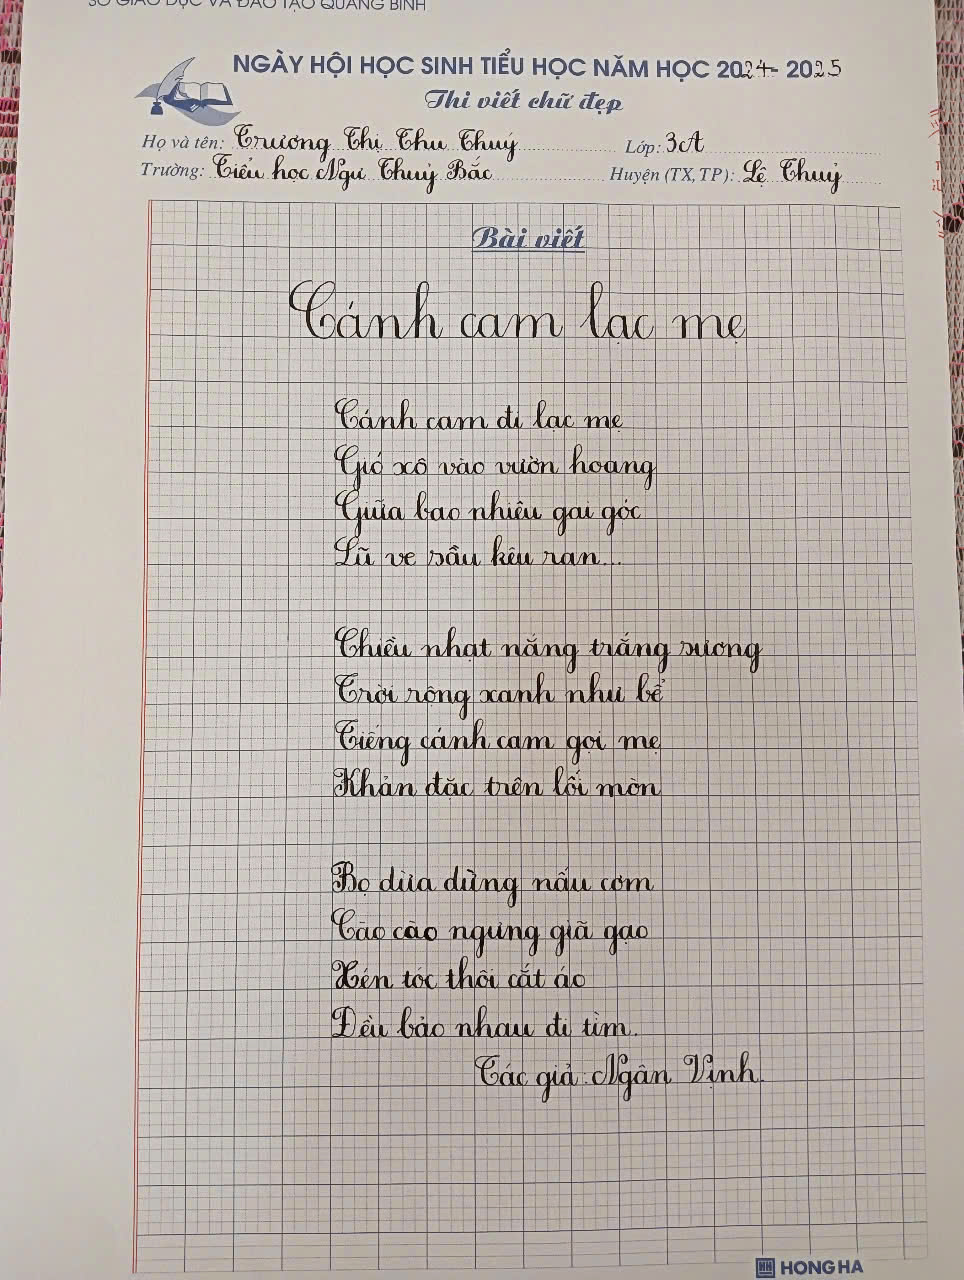 SỞ GIÁO DỤC VÀ ĐÀO TẠO QUẢNG BÌNH
NGÀY HỘI HỌC SINH TIỂU HỌC NĂM HỌC 2024 - 2025
Thi viết chữ đẹp
Họ và tên: Trương Thị Thu Thuý Lớp: 3A
Trường: Tiểu học Ngư Thuỷ Bắc Huyện (TX, TP): Lệ Thuỷ
Bài viết
Cánh cam lạc mẹ
Cánh cam đi lạc mẹ
Gió xô vào vườn hoang
Giữa bao nhiêu gai góc
Lũ ve sầu kêu ran...
Chiều nhạt nắng trắng sương
Trời rộng xanh như bể
Tiếng cánh cam gọi mẹ
Khản đặc trên lối mòn
Bọ dừa dừng nấu cơm
Cào cào ngưng giã gạo
Xén tóc thôi cắt áo
Đều bảo nhau đi tìm.
Tác giả: Ngân Vịnh.
HH HONG HA